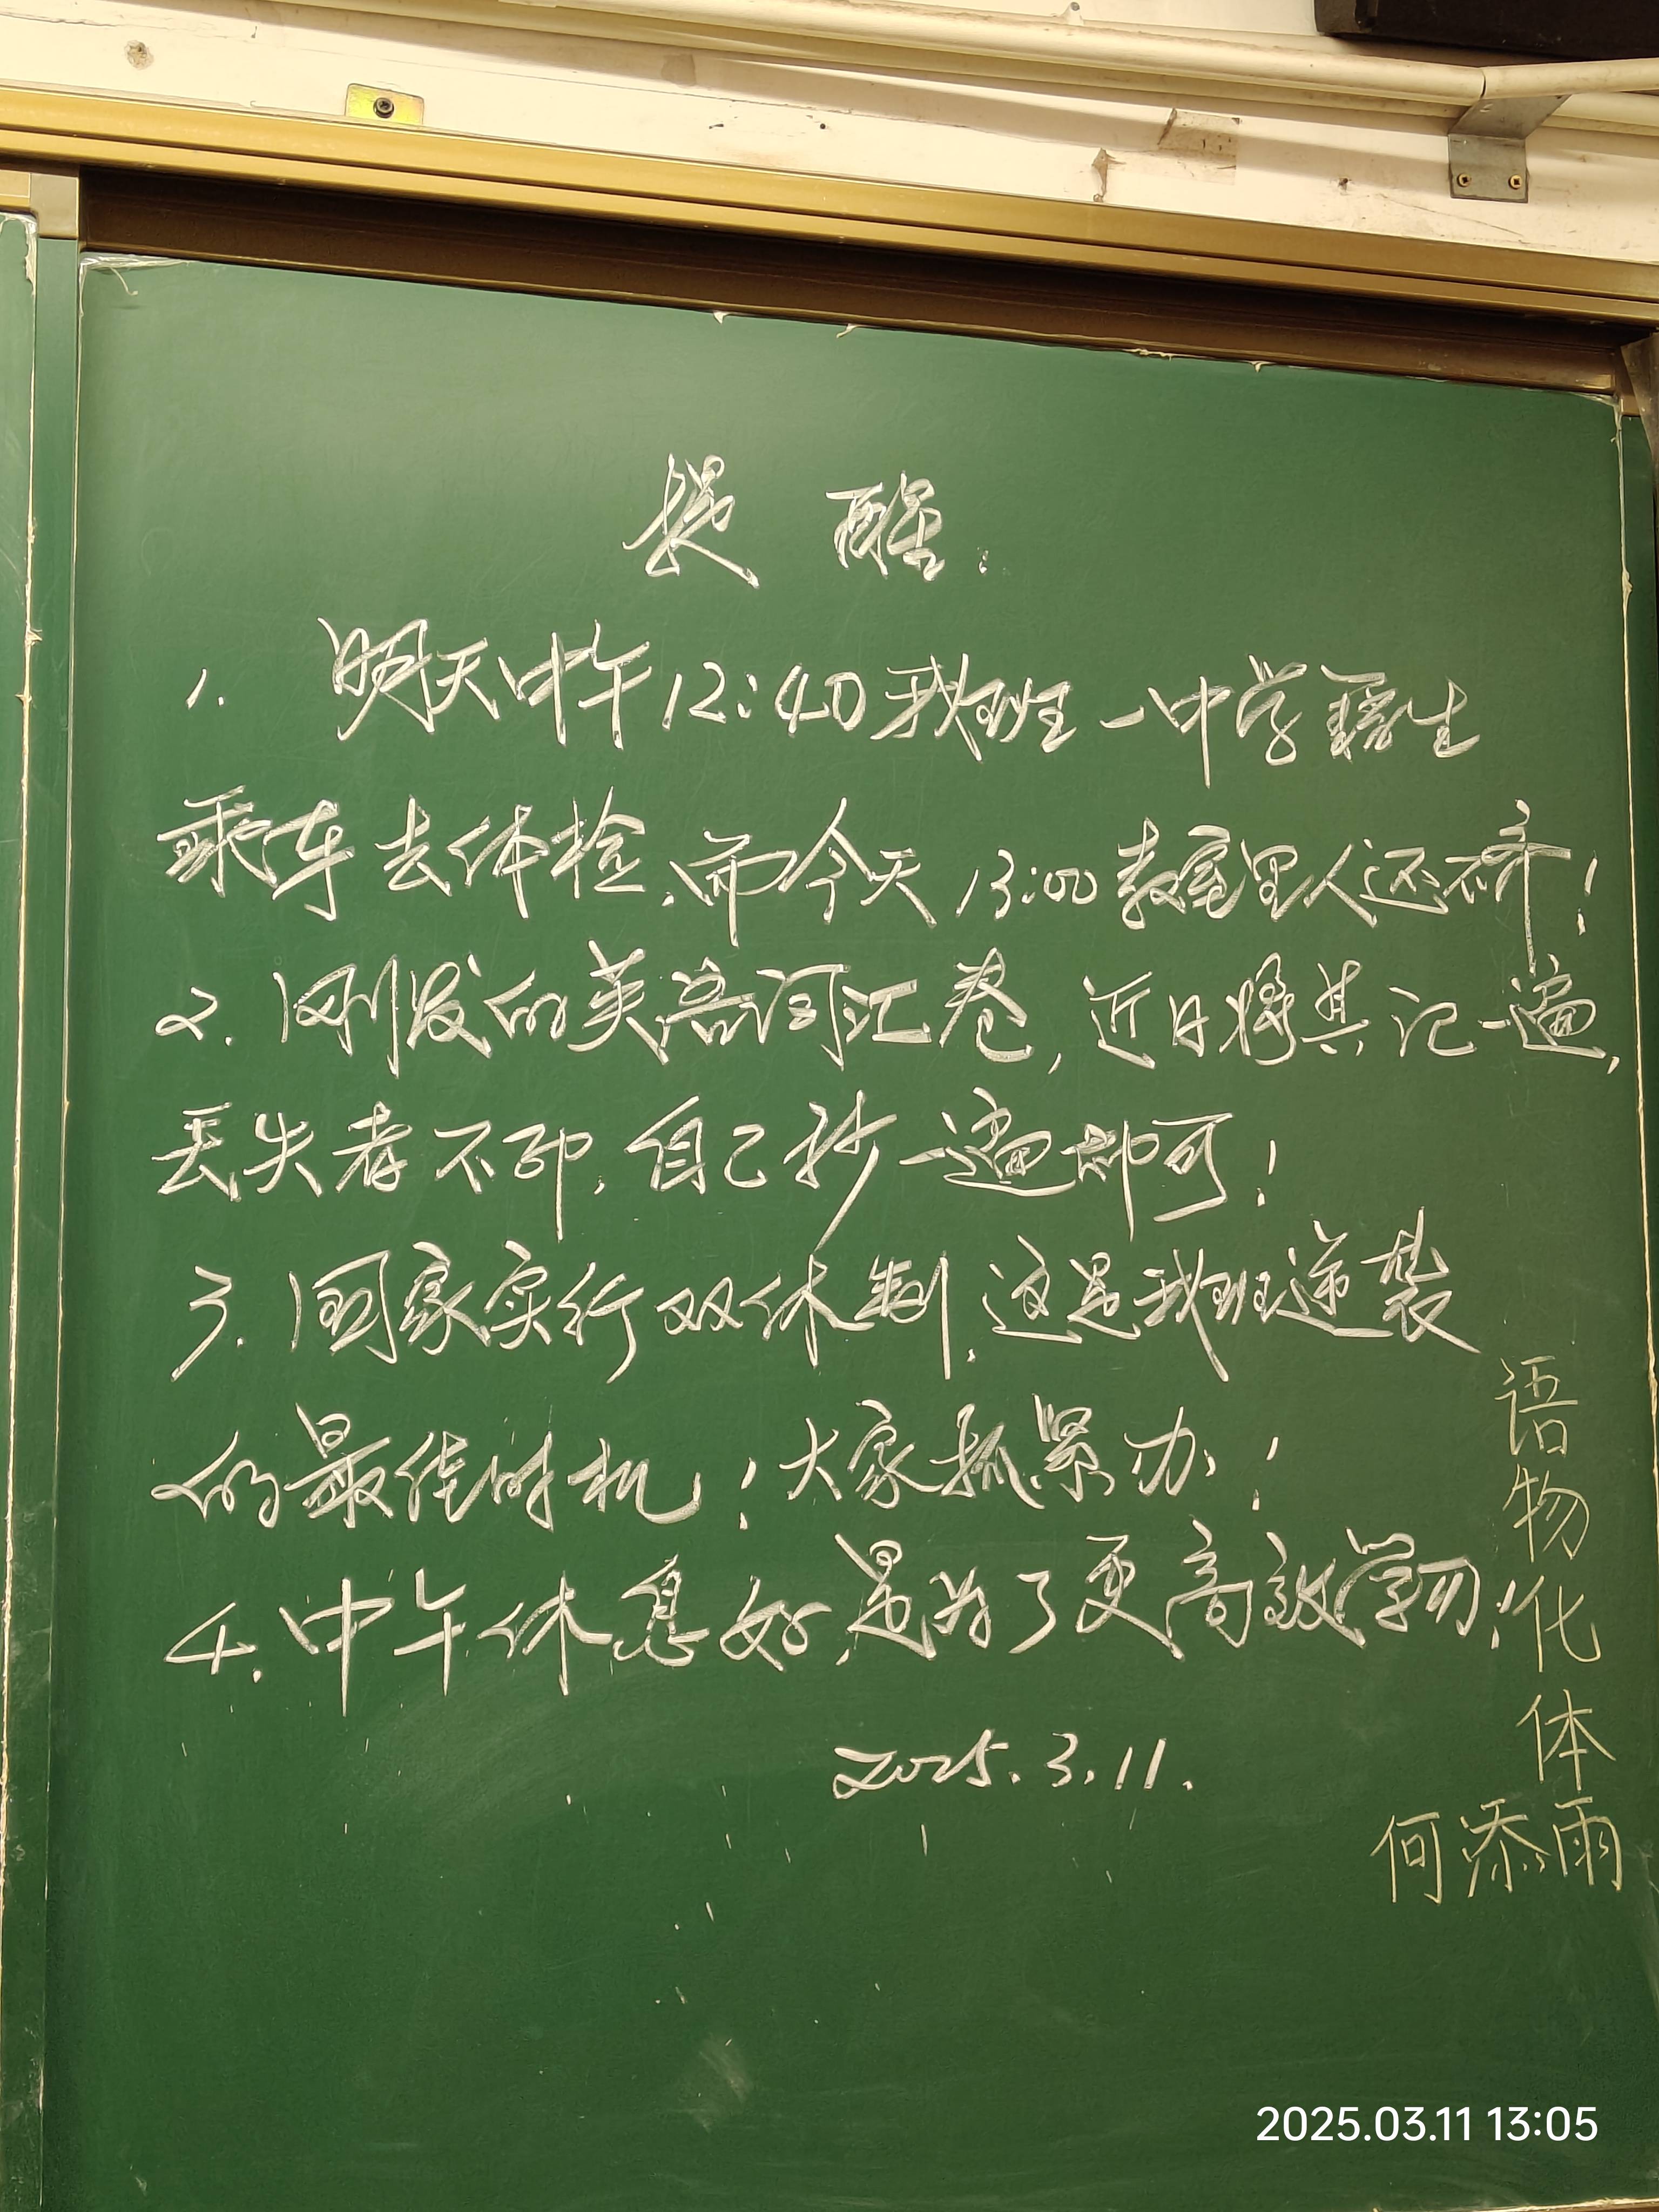 提 醒:
1. 明天中午12:40我班一中学籍生
乘车去体检.而今天13:00教室里人还不齐!
2.刚发的英语词汇卷,近日将其记一遍,
丢失者不印.自己抄一遍即可!
3.国家实行双休制.这是我班逆袭
的最佳时机!大家抓紧办!
4.中午休息好,是为了更高效学习!
2025.3.11.
语
物
化
体
何添雨
2025.03.11 13:05